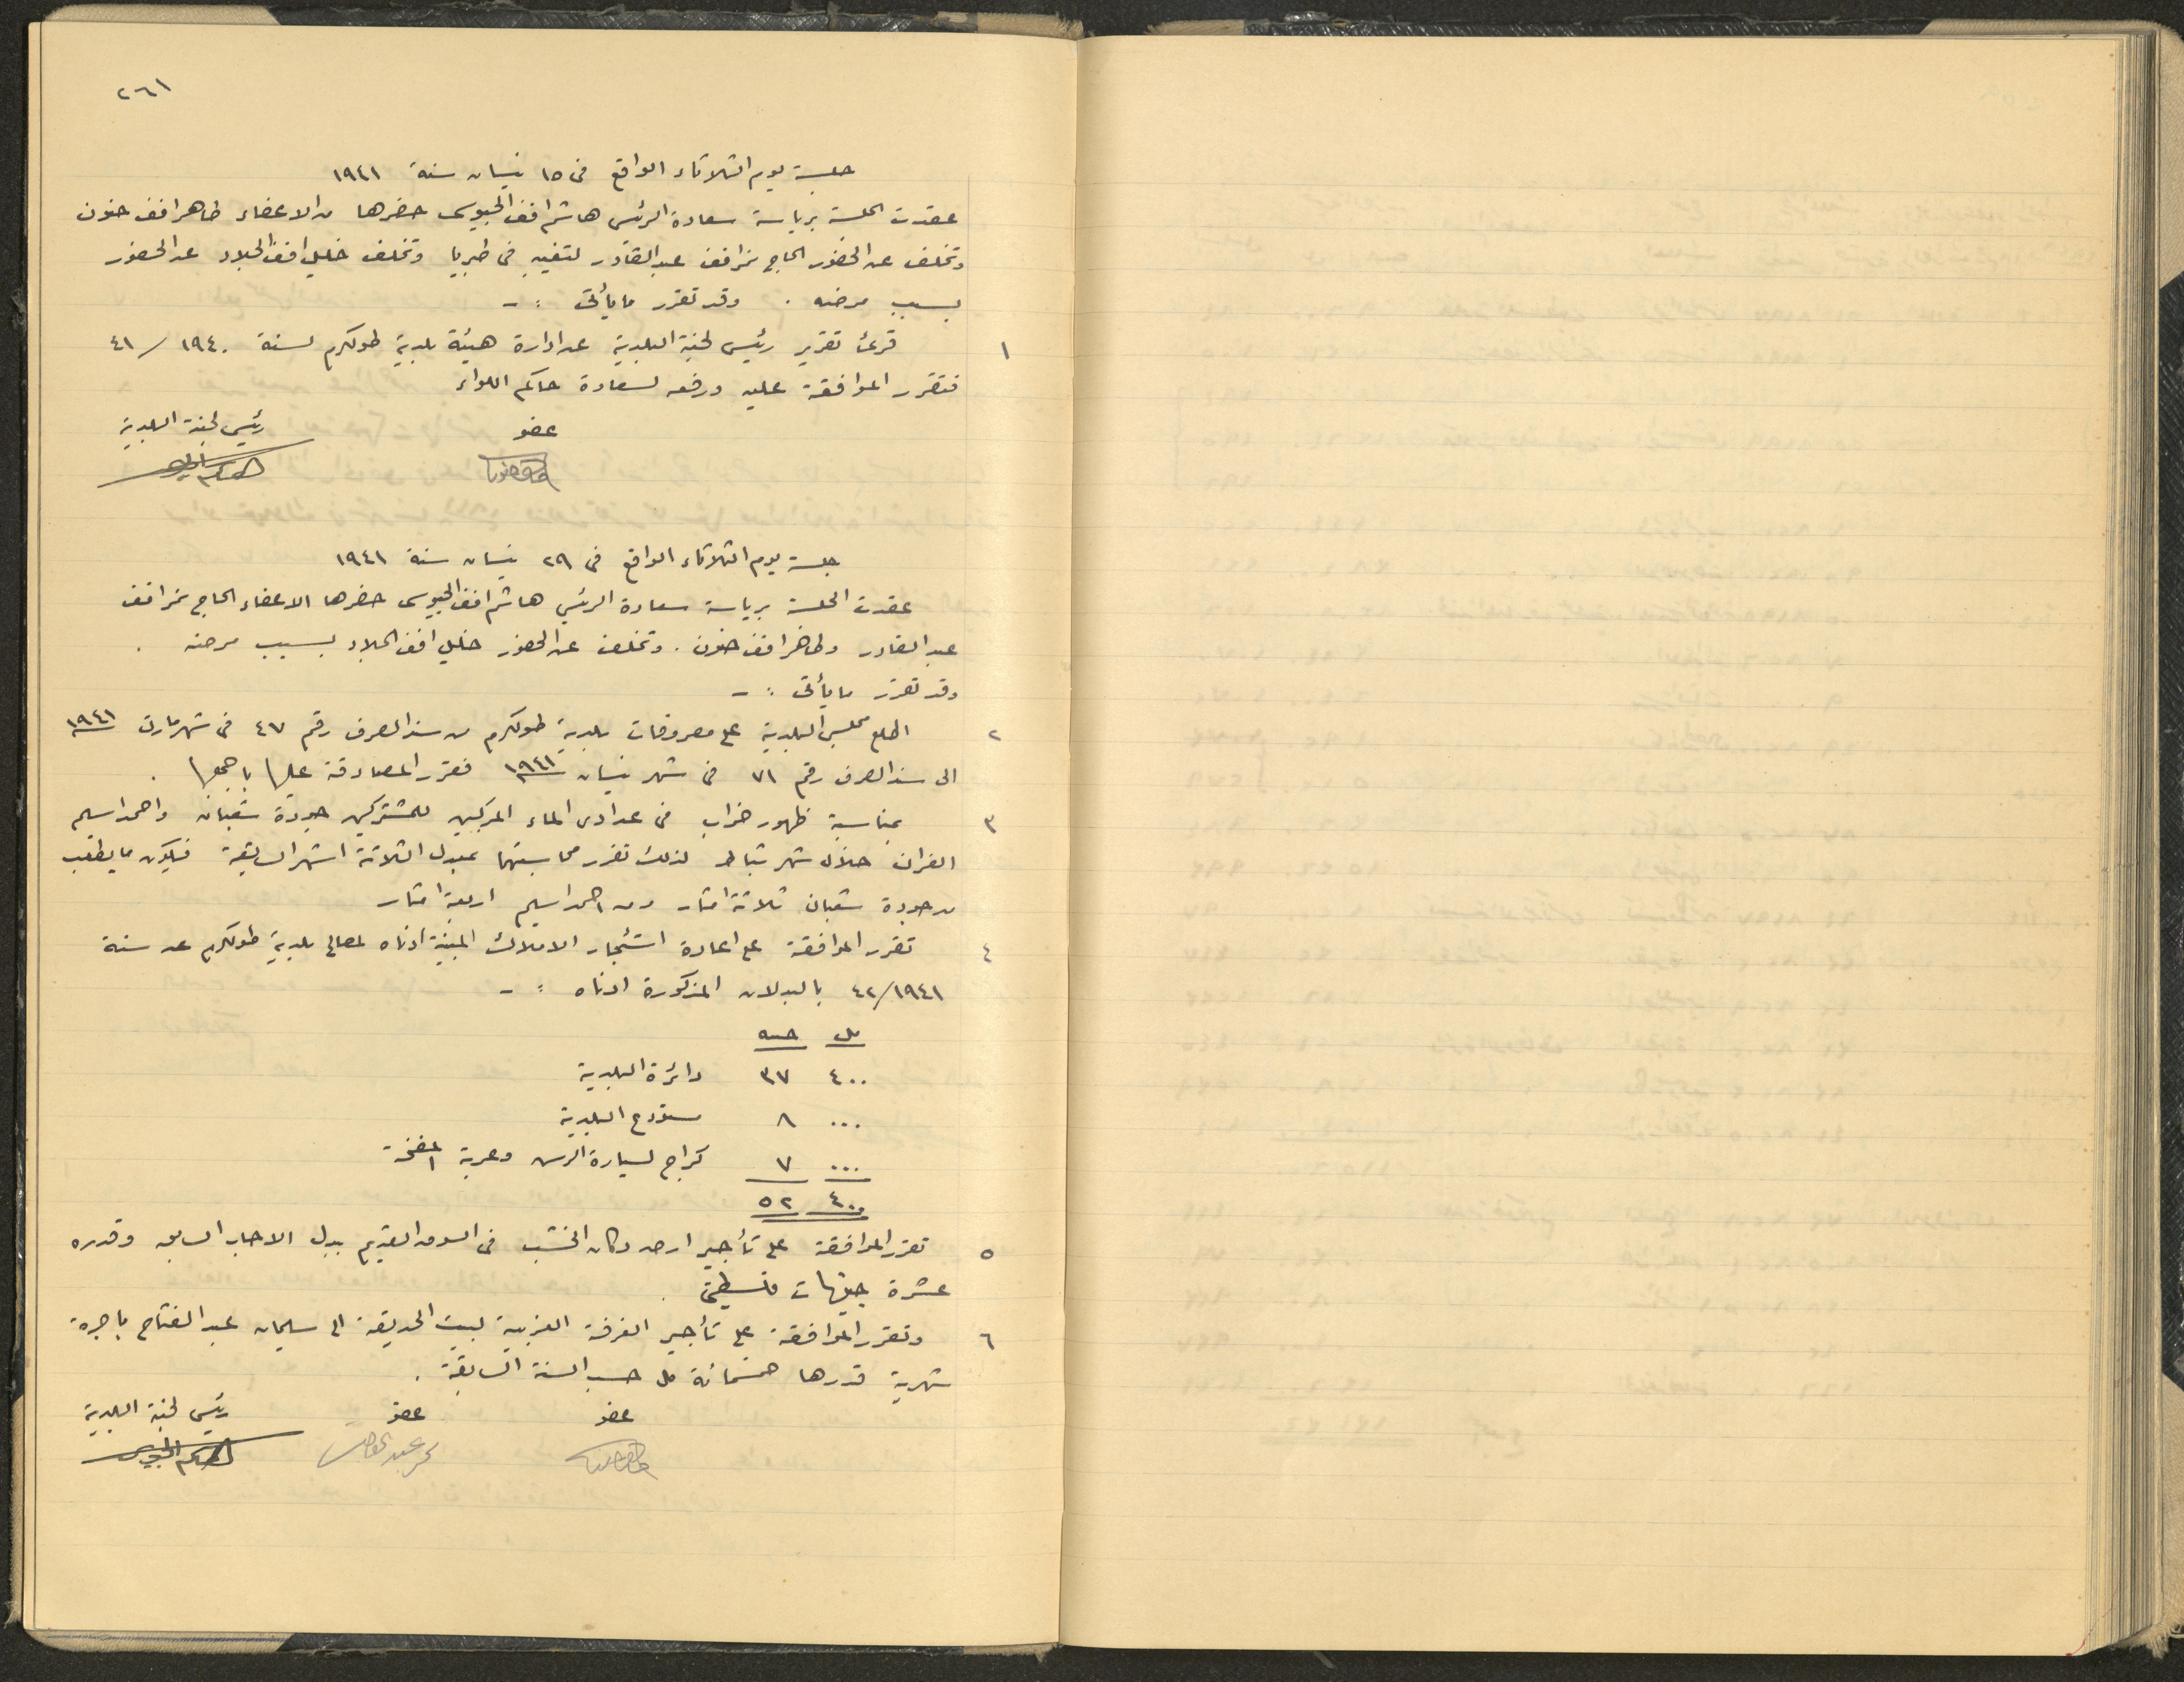 ٢٦١
جلسة يوم الثلاثاء الواقع فى ١٥ نيسان سنة ١٩٤١
عقدت الجلسة برياسة سعادة الرئيس هاشم افندي الجيوسى حضرها من الاعضاء طاهر افندي حنون
وتخلف عن الحضور الحاج نمر افندي عبد القادر لتغيبه فى طبريا وتخلف خليل افندي الجلاد عن الحضور
بسبب مرضه . وقد تقرر ما يأتى :-
١ قرئ تقرير رئيس لجنة البلدية عن ادارة هيئة بلدية طولكرم لسنة ١٩٤٠/٤١
فتقرر الموافقة عليه ورفعه لسعادة حاكم اللواء
عضو رئيس لجنة البلدية
هاشم الجيوسى
جلسة يوم الثلاثاء الواقع فى ٢٩ نيسان سنة ١٩٤١
عقدت الجلسة برياسة سعادة الرئيس هاشم افندي الجيوسى حضرها الاعضاء الحاج نمر افندي
عبد القادر وطاهر افندي حنون . وتخلف عن الحضور خليل افندي الجلاد بسبب مرضه .
وقد تقرر ما يأتى :-
٢ اطلع مجلس البلدية على مصروفات بلدية طولكرم من سند الصرف رقم ٤٧ فى شهر مارت ١٩٤١
الى سند الصرف رقم ٧١ فى شهر نيسان ١٩٤١ فتقرر المصادقة عليها باجمعها .
٣ بمناسبة ظهور خراب فى عدادى الماء المركبين للمشتركين جودة شعبان واحمد اسليم
الفران خلال شهر شباط لذلك تقرر محاسبتهما بمعدل الثلاثة اشهر السابقة فيكون ما يطلب
من جودة شعبان ثلاثة امتار ومن احمد اسليم اربعة امتار
٤ تقرر الموافقة على اعادة استئجار الاملاك المبينة ادناه لمصالح بلدية طولكرم عن سنة
٤٢/١٩٤١ بالبدلات المذكورة ادناه :-
مل جنيه
٤٠٠ ٣٧ دائرة البلدية
٠٠٠ ٨ مستودع البلدية
٠٠٠ ٧ كراج لسيارة الرش وعربة المضخة
٤٠٠ ٥٢
٥ تقرر الموافقة على تأجير ارض دكان الخشب فى السوق القديم ببدل الايجار السابق وقدره
عشرة جنيهات فلسطينى .
٦ وتقرر الموافقة على تأجير الغرفة الغربية لبيت الحديقة الى سليمان عبد الفتاح باجرة
شهرية قدرها خمسمائة مل حسب السنة السابقة .
عضو عضو رئيس لجنة البلدية
نمر عبد القادر هاشم الجيوسى